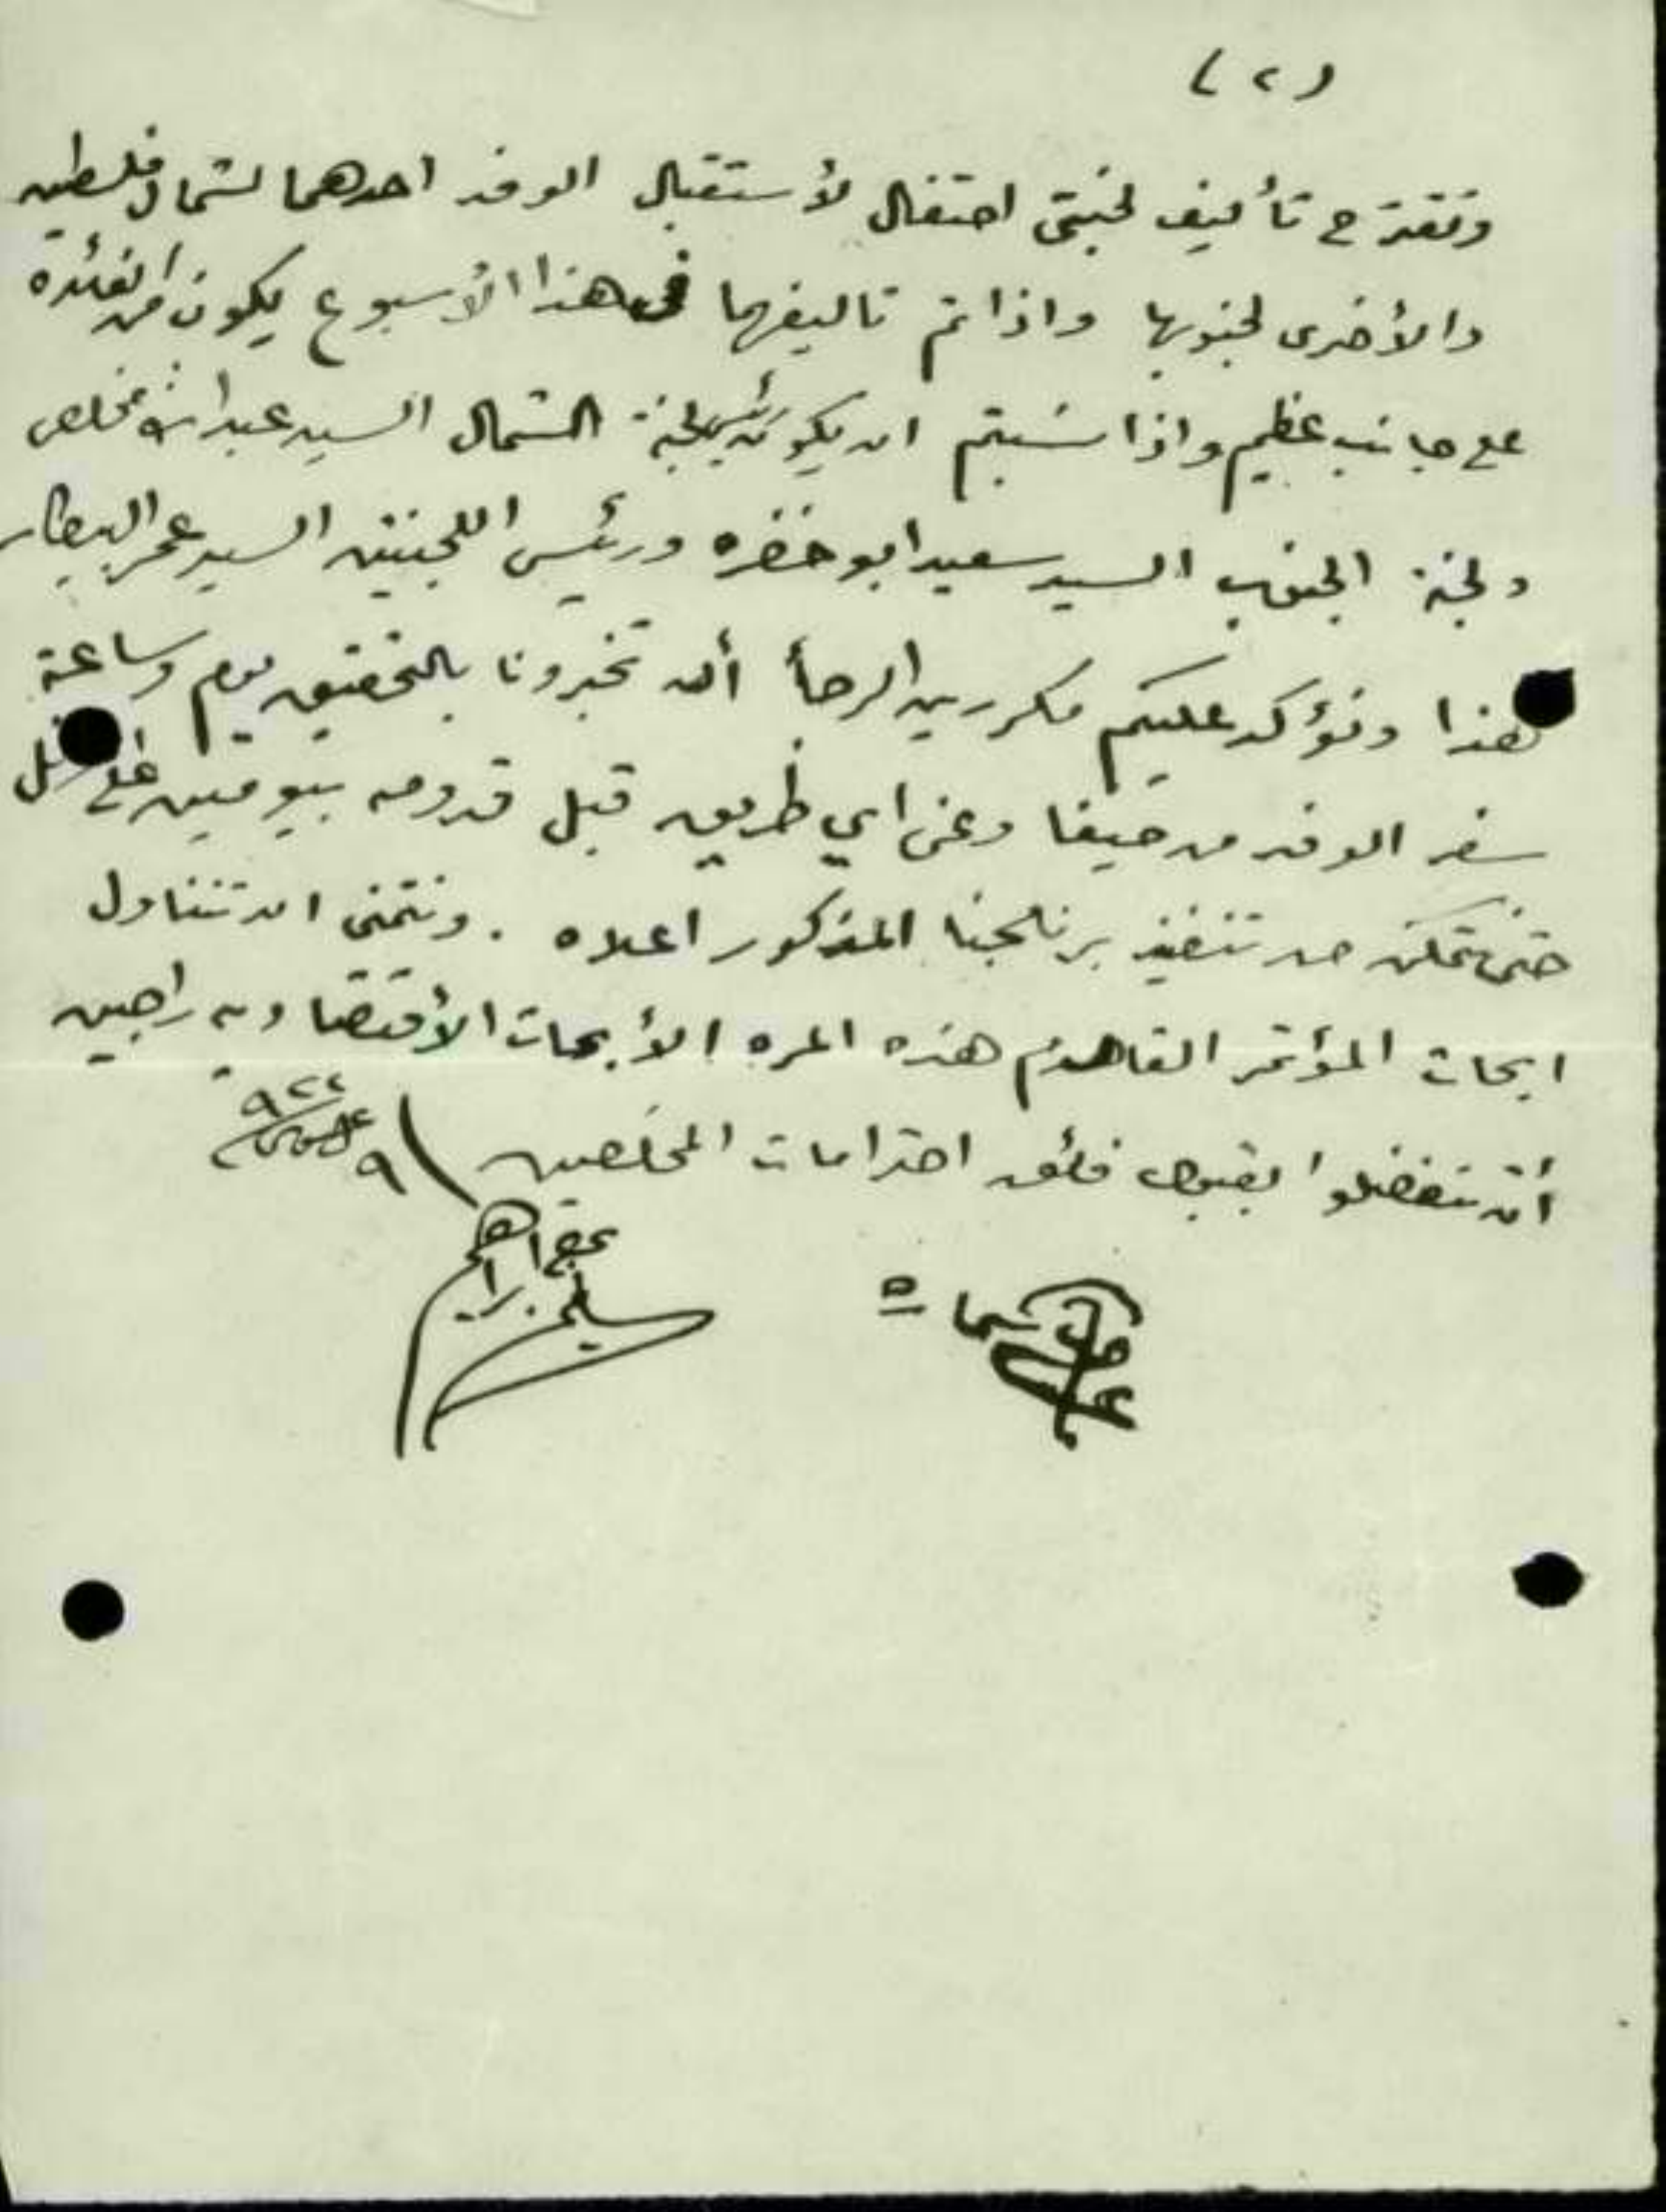 (٢)
ونقترح تأليف لجنتى احتفال لأستقبال الوفد احدهما لشمال فلسطين
والأخرى لجنوبها واذا تم تاليفهما فى هذا الأسبوع يكون من الفائدة
على جانب عظيم واذا شئتم ان يكون رئيس لجنة الشمال السيد عبدالله مخلص
ولجنة الجنوب السيد سعيد ابو خضره ورئيس اللجنتين السيد عمر البيطار
هذا ونؤكد عليكم مكررين الرجأ أن تخبرونا بالتحقيق يوم وساعة
سفر الوفد من حيفا وعن اي طريق قبل قدومه بيومين على
حتى نتمكن من تنفيذ برنامجنا المذكور اعلاه . ونتمنى ان تتناول
ابحاث المؤتمر القادم هذه المره الأبحاث الأقتصاديه راجين
أن تتفضلوا بقبول فائق احترامات المخلصين
٩ اغسطس ٩٢٢